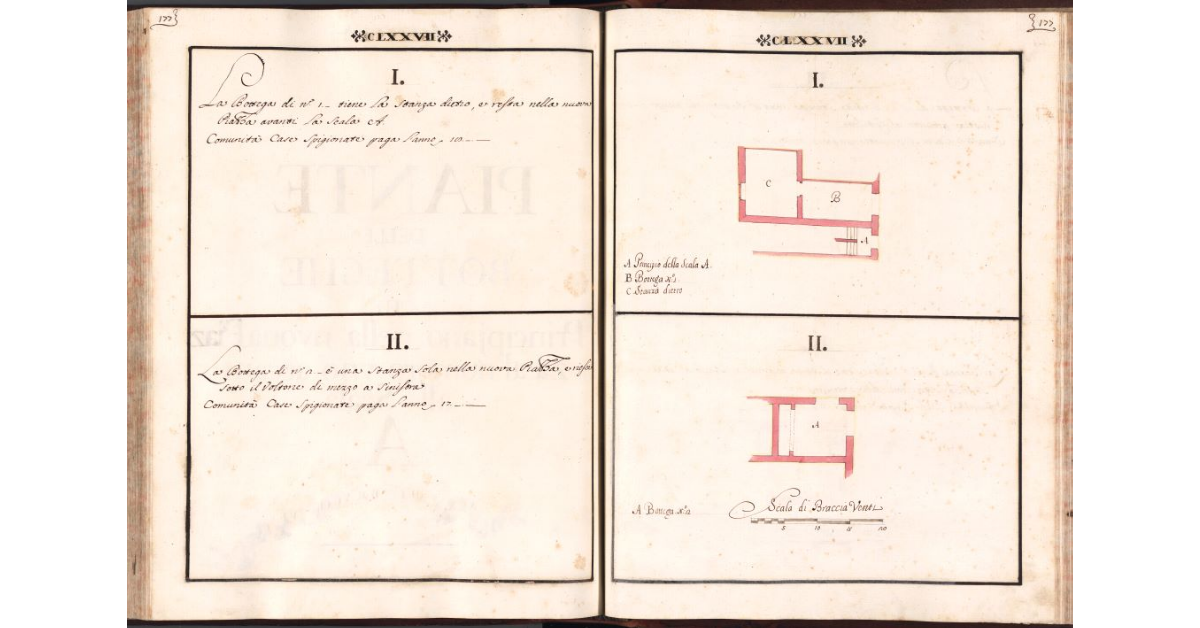 177
CLXXVII
I.
La Bottega di n.º 1 _ tiene la stanza dietro, e resta nella nuova
Piazza avanti la scala A.
Comunità Case spigionate paga l'anno
II.
La Bottega di n.º 2 _ è una stanza sola nella nuova Piazza, e resta
sotto il Voltone di mezzo a sinistra
Comunità Case spigionate paga l'anno
177
CLXXVII
I.
C
B
A
A Principio della Scala A.
B Bottega n.º 1
C Stanza dietro
II.
A
A Bottega n.º 2
Scala di Braccia Venti
5 10 15 20